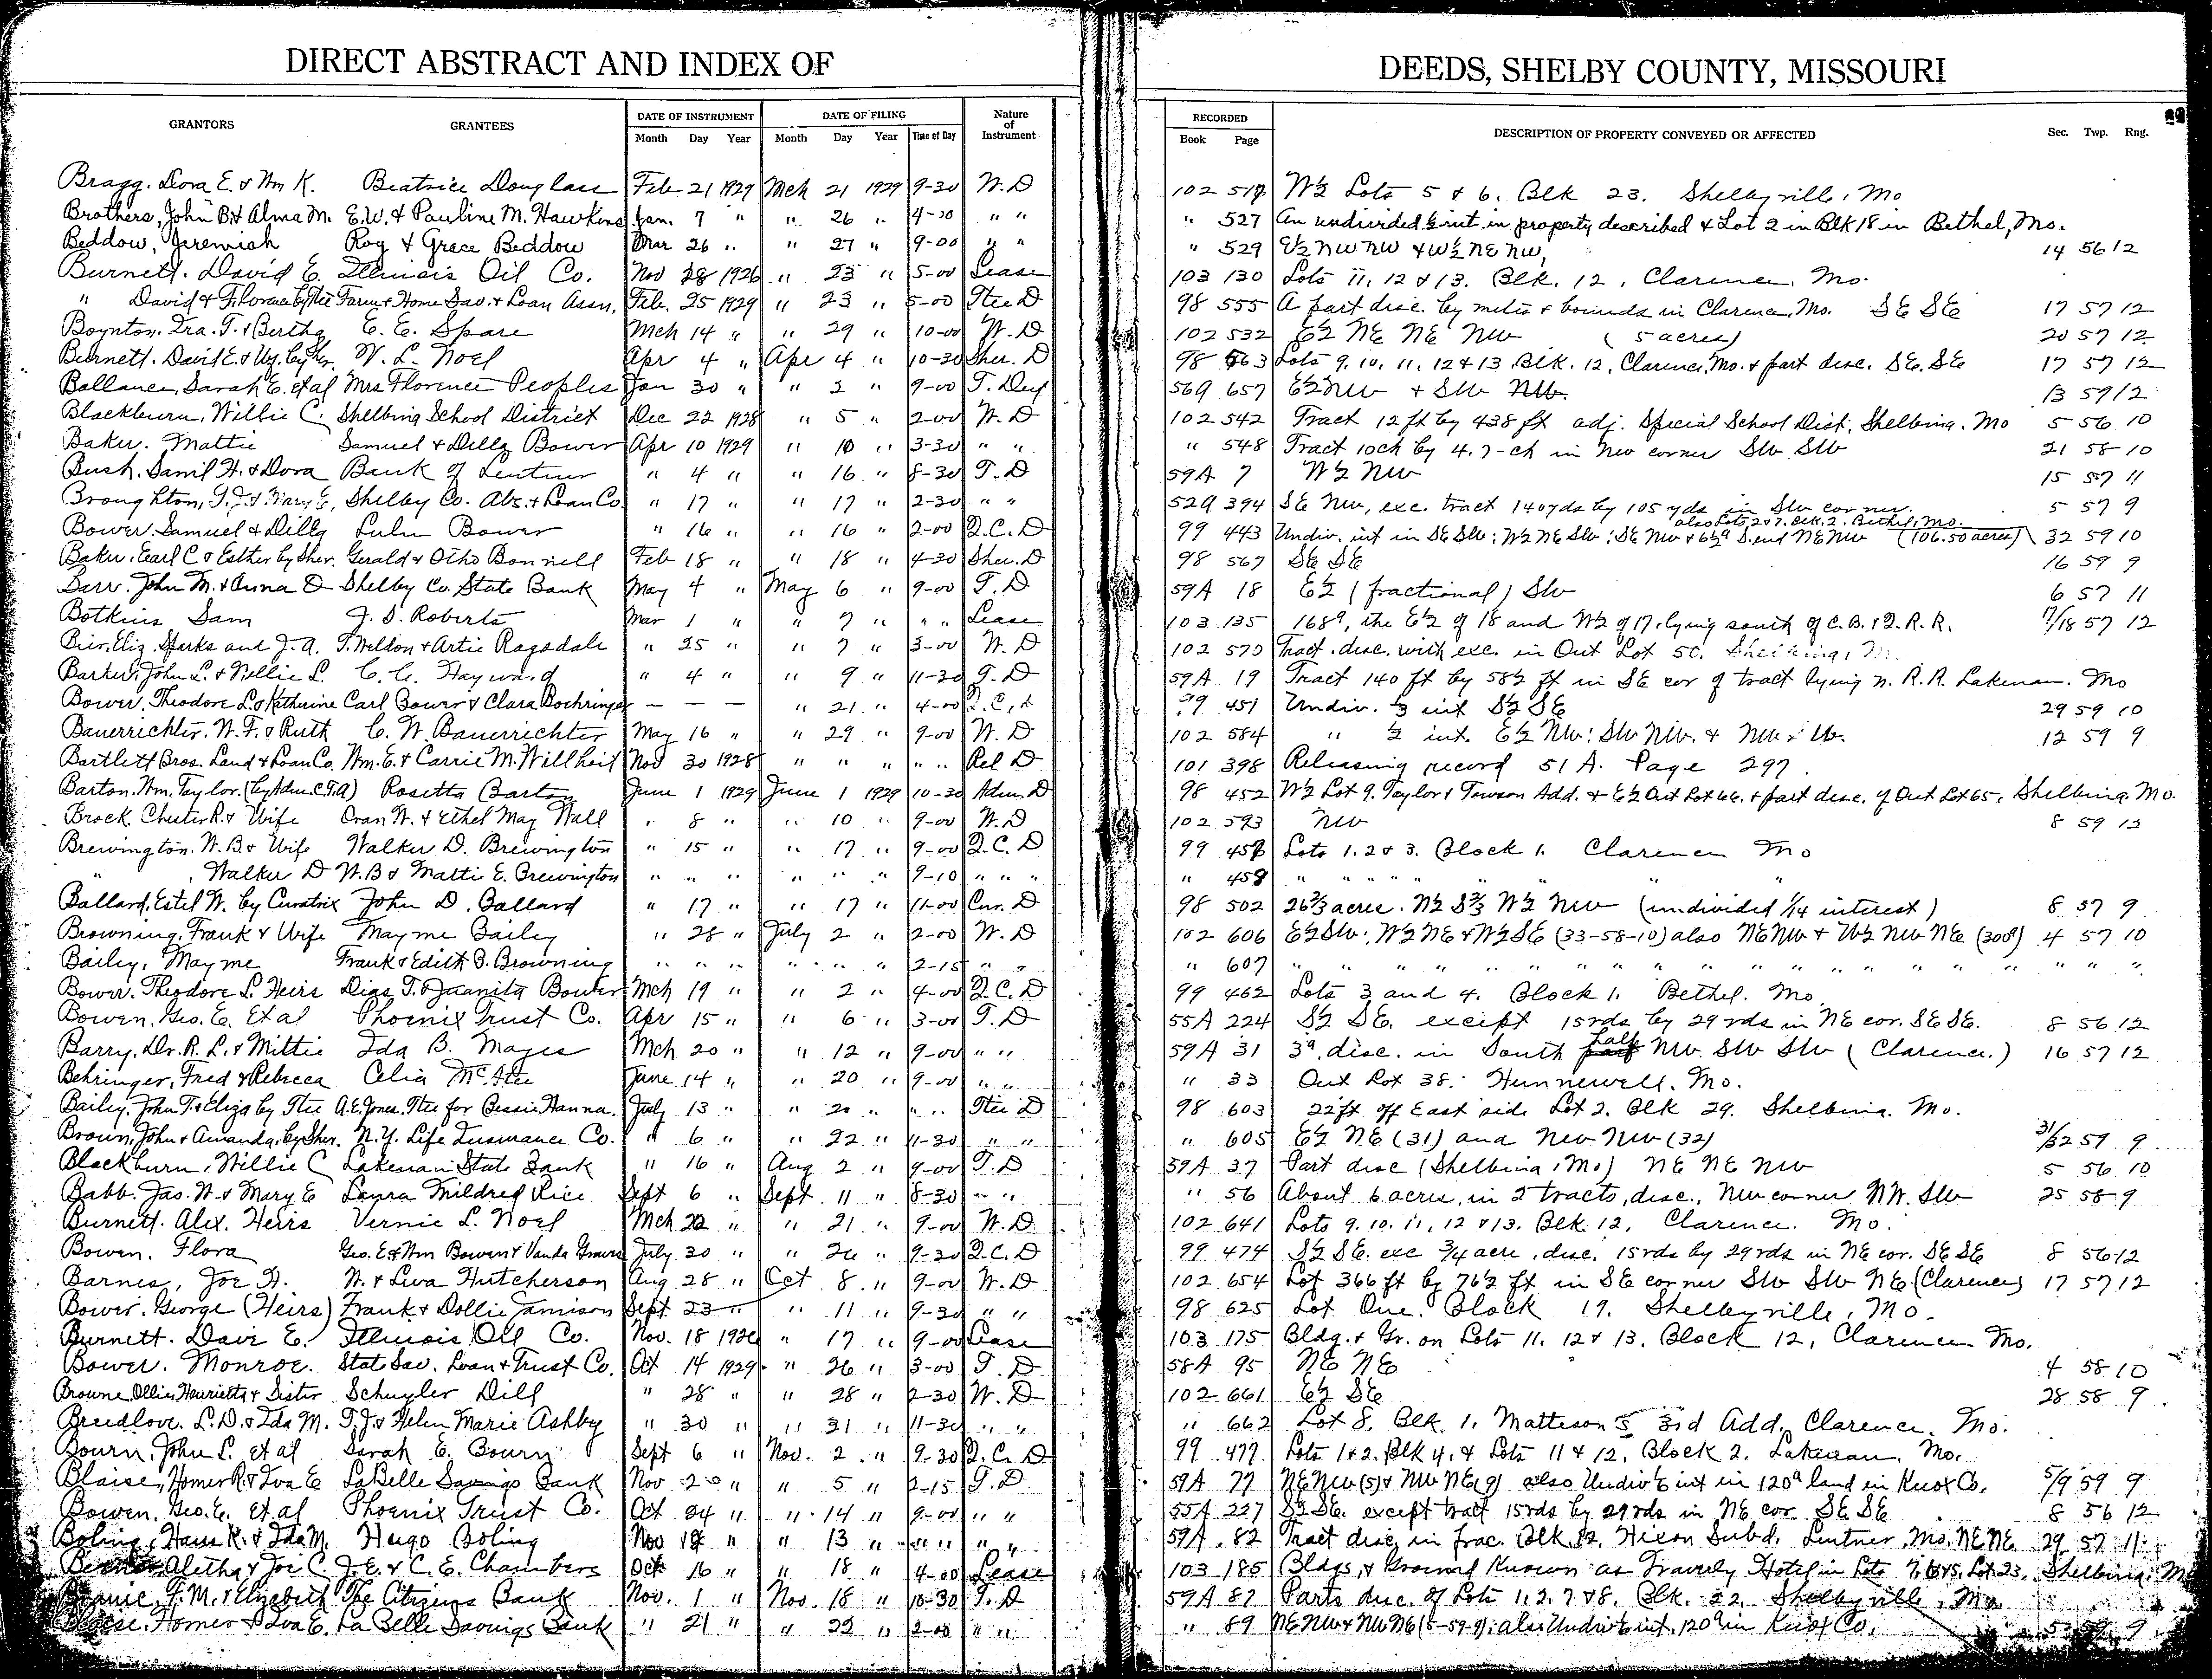 DIRECT ABSTRACT AND INDEX OF DEEDS, SHELBY COUNTY, MISSOURI
GRANTORS GRANTEES DATE OF INSTRUMENT DATE OF FILING Nature of Instrument RECORDED DESCRIPTION OF PROPERTY CONVEYED OR AFFECTED Sec. Twp. Rng.
Month Day Year Month Day Year Time of Day Book Page
Bragg. Dora E. & Wm K. Beatrice Douglass Feb 21 1929 Mch 21 1929 9-30 W.D 102 517 W½ Lots 5 & 6. Blk 23. Shelbyville, Mo
Brothers, John B. & Alma M. E.W. & Pauline M. Hawkins Jan. 7 " " 26 " 4-30 " " " 527 An undivided ½ int. in property described & Lot 2 in Blk 18 in Bethel, Mo.
Beddow, Jeremiah Roy & Grace Beddow Mar 26 " " 27 " 9-00 " " " 529 E½ NW NW & W½ NE NW, 14 56 12
Burnett. David E. Illinois Oil Co. Nov 28 1926 " 23 " 5-00 Lease 103 130 Lots 11, 12 & 13. Blk. 12, Clarence, Mo.
" David & Florence by Tee Farm & Home Sav. & Loan Assn. Feb. 25 1929 " 23 " 5-00 Tee D 98 555 A part disc. by metes & bounds in Clarence, Mo. SE SE 17 57 12
Boynton. Ira. T. & Bertha E. E. Spare Mch 14 " " 29 " 10-00 W.D 102 532 E½ NE NE NW (5 acres) 20 57 12
Burnett. David E. & Wf. by Sher. W. L. Noel Apr 4 " Apr 4 " 10-30 Sher. D 98 563 Lots 9, 10, 11, 12 & 13. Blk. 12, Clarence, Mo. & part disc. SE. SE 17 57 12
Ballance, Sarah E. et al Mrs Florence Peoples Jan 30 " " 2 " 9-00 T. 569 657 E½ NW & SW NW. 13 59 12
Blackburn, Willie C. Shelbina School District Dec 22 1928 " 5 " 2-00 W.D 102 542 Tract 12 ft by 438 ft adj. Special School Dist, Shelbina. Mo 5 56 10
Baker. Mattie Samuel & Dilla Bower Apr 10 1929 " 10 " 3-30 " " " 548 Tract 10ch by 4.7-ch in NW corner SW SW 21 58 10
Bush. Saml H. & Dora Bank of Lentner " 4 " " 16 " 8-30 T.D 59A 7 W½ NW 15 57 11
Broughton, T.J. & Mary E, Shelby Co. Abs. & Loan Co. " 17 " " 17 " 2-30 " " 529 394 SE NW, exc. tract 140 yds by 105 yds in SW corner. 5 57 9
also Lots 2 & 7. Blk. 2. Bethel, Mo.
Bower. Samuel & Dilla Lulu Bower " 16 " " 16 " 2-00 Q.C.D 99 443 Undiv. int in SE SW; W½ NE SW; SE NW & 6½ª S. end NE NW (106.50 acres) 32 59 10
Baker. Earl C & Esther by Sher. Gerald & Otho Bonnell Feb 18 " " 18 " 4-30 Sher. D 98 567 SE SE 16 59 9
Barr. John M. & Anna D Shelby Co. State Bank May 4 " May 6 " 9-00 T.D 59A 18 E½ (fractional) SW 6 57 11
Botkins Sam J. S. Roberts Mar 1 " " 7 " " " Lease 103 135 168ª, the E½ of 18 and W½ of 17. lying south of C.B. & Q.R.R. 17/18 57 12
Bier, Eliz. Sparks and J. A. T. Weldon & Artie Ragsdale " 25 " " 7 " 3-00 W.D 102 570 Tract. disc. with exc. in Out Lot 50. Shelbina, Mo.
Barker, John L. & Nellie L. C. C. Hayward " 4 " " 9 " 11-30 T.D 59A 19 Tract 140 ft by 58½ ft in SE cor of tract lying n. R.R. Lakenan. Mo
Bower, Theodore L. & Katherine Carl Bower & Clara Boehringer — — — " 21 " 4-00 Q.C. 99 451 Undiv. ⅓ int S½ SE 29 59 10
Bauerrichter. W. F. & Ruth C. W. Bauerrichter May 16 " " 29 " 9-00 W.D 102 584 " ½ int. E½ NW; SW NW. & 12 59 9
Bartlett Bros. Land & Loan Co. Wm. E. & Carrie M. Willheit Nov 30 1928 " " " " " Rel D 101 398 Releasing record 51 A. Page 297.
Barton. Wm. Taylor. (by Adm. C.T.A) Rosetta Barton June 1 1929 June 1 1929 10-30 Adm. D 98 452 W½ Lot 9. Taylor & Towson Add. & E½ Out Lot 66. & part disc. of Out Lot 65. Shelbina. Mo.
Brock. Chester R. & Wife Oran W. & Ethel May Wall " 8 " " 10 " 9-00 W.D 102 593 NW 8 59 12
Brewington. W. B. & Wife Walker D. Brewington " 15 " " 17 " 9-00 Q.C.D 99 456 Lots 1. 2 & 3. Block 1. Clarence Mo
" , Walker D W. B & Mattie E. Brewington " " " " " " 9-10 " " " " 458 " " " " " " " "
Ballard, Estel W. by Curatrix John D. Ballard " 17 " " 17 " 11-00 Cur. D 98 502 26⅔ acres. W½ S⅔ W½ NW (undivided 1/14 interest) 8 57 9
Browning, Frank & Wife Mayme Bailey " 28 " July 2 " 2-00 W.D 102 606 E½ SW; W½ NE & W½ SE (33-58-10) also NE NW & W½ NW NE (300ª) 4 57 10
Bailey, Mayme Frank & Edith B. Browning " " " " " " 2-15 " " " 607 " " " " " " " " " " " "
Bower. Theodore L. Heirs Dias T. & Juanita Bower Mch 19 " " 2 " 4-00 Q.C.D 99 462 Lots 3 and 4. Block 1. Bethel. Mo.
Bowen, Geo. E. Et al Phoenix Trust Co. Apr 15 " " 6 " 3-00 T.D 55A 224 S½ SE. except 15rds by 29 rds in NE cor. SE SE. 8 56 12
Barry, Dr. R. L. & Mittie Ida B. Mayes Mch 20 " " 12 " 9-00 " " 59A 31 3ª. disc. in South half NW SW SW (Clarence.) 16 57 12
Behringer, Fred & Rebecca Celia McAtee June 14 " " 20 " 9-00 " " " 33 Out Lot 38. Hunnewell. Mo.
Bailey. John T. & Eliza by Tee A. E. Jones. Tee for Bessie Hanna. July 13 " " 20 " " " Tee D 98 603 22ft off East side Lot 2. Blk 29. Shelbina. Mo.
Brown, John & Amanda, by Sher. N.Y. Life Insurance Co. " 6 " " 22 " 11-30 " " " 605 E½ NE (31) and NW NW (32) 31/32 59 9
Blackburn, Willie C Lakenan State Bank " 16 " Aug 2 " 9-00 T.D 59A 37 Part disc (Shelbina, Mo) NE NE NW 5 56 10
Babb. Jas. W. & Mary E Laura Mildred Rice Sept 6 " Sept 11 " 8-30 " " " 56 About 6 acres, in 2 tracts, disc., NW corner NW. SW 25 58 9
Burnett. Alex. Heirs Vernie L. Noel Mch 22 " " 21 " 9-00 W.D 102 641 Lots 9. 10. 11, 12 & 13. Blk. 12, Clarence. Mo.
Bowen. Flora Geo. E. & Wm Bowen & Vanda Graves July 30 " " 26 " 9-30 Q.C.D 99 474 S½ SE. exc ¾ acre, disc. 15rds by 29rds in NE cor. SE SE 8 56 12
Barnes, Joe H. W. & Liva Hutcherson Aug 28 " Oct 8 " 9-00 W.D 102 654 Lot 366 ft by 76½ ft in SE corner SW SW NE (Clarence) 17 57 12
Bower. George (Heirs) Frank & Dollie Jamison Sept 23 " " 11 " 9-30 " " 98 625 Lot One. Block 19. Shelbyville, Mo.
Burnett. Dave E. Illinois Oil Co. Nov. 18 1926 " 17 " 9-00 Lease 103 175 Bldg. & Gr. on Lots 11. 12 & 13. Block 12, Clarence. Mo.
Bower. Monroe. State Sav. Loan & Trust Co. Oct 14 1929 " 26 " 3-00 T.D 58A 95 NE NE 4 58 10
Browne, Ollie, Henrietta & Sister Schuyler Dill " 28 " " 28 " 2-30 W.D 102 661 E½ SE 28 58 9
Breedlove. L. D. & Ida M. T. J. & Helen Marie Ashby " 30 " " 31 " 11-30 " " " 662 Lot 8. Blk. 1. Matteson's 3rd Add. Clarence. Mo.
Bourn, John L. et al Sarah E. Bourn Sept 6 " Nov. 2 " 9-30 Q.C.D 99 477 Lots 1 & 2. Blk 4. & Lots 11 & 12. Block 2. Lakenan, Mo.
Blaise, Homer R. & Iva E LaBelle Savings Bank Nov 20 " " 5 " 2-15 T.D 59A 77 NE NW (5) & NW NE (9) also Undiv ⅙ int in 120ª land in Knox Co. 5/9 59 9
Bowen, Geo. E. et al Phoenix Trust Co. Oct 24 " " 14 " 9-00 " " 55A 227 S½ SE. except tract 15rds by 29rds in NE cor. SE SE 8 56 12
Boling, Hans K. & Ida M. Hugo Boling Nov 12 " " 13 " " " " " 59A 82 Tract disc, in frac. Blk. 12. Hixon Subd. Lentner, Mo. NE NE 29 57 11
Aletha & Joe C. J. E. & C. E. Chambers Oct 16 " " 18 " 4-00 Lease 103 185 Bldgs. & Ground Known as Waverly Hotel in Lots Shelbina, Mo
F. M. & Elizabeth The Citizens Bank Nov. 1 " Nov. 18 " 10-30 T.D 59A 87 Parts disc. of Lots 1, 2, 7 & 8. Blk. 22. Shelbyville, Mo.
Blaise. Homer & Iva E. La Belle Savings Bank " 21 " " 22 " 2-00 " " " 89 NE NW & NW NE (5-59-9); also Undiv ⅙ int. 120ª in Knox Co. 5 59 9